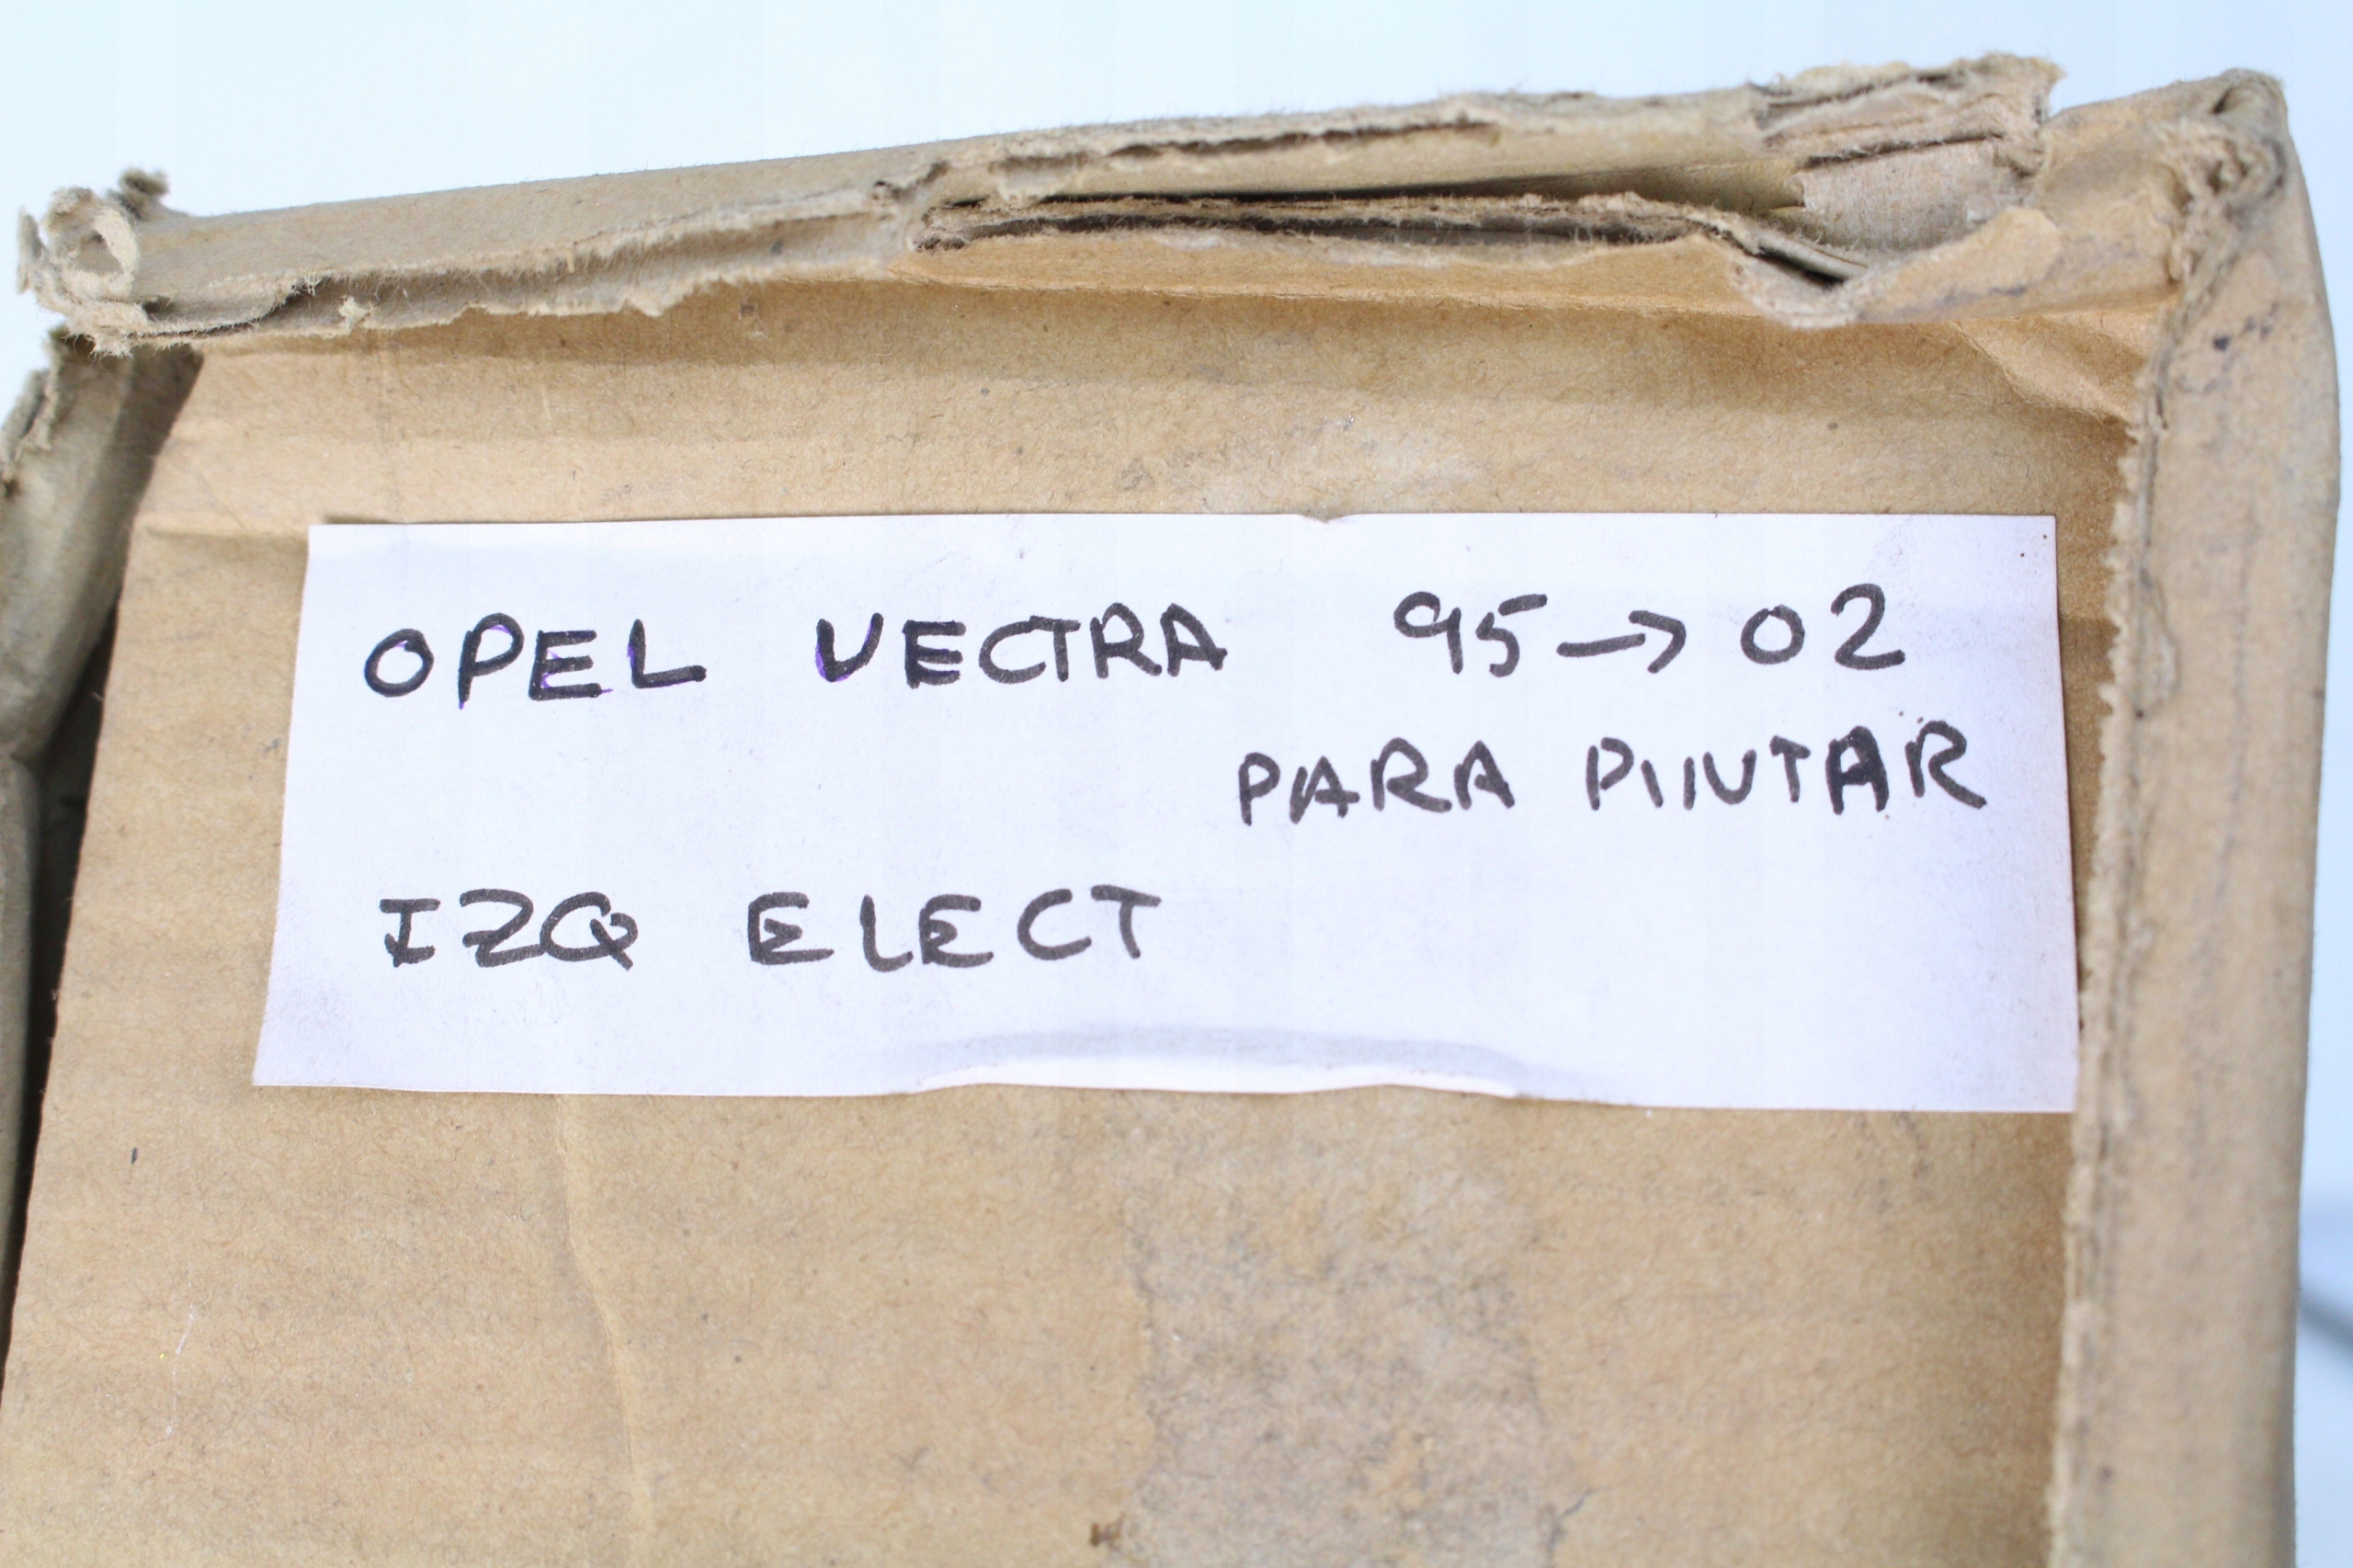 OPEL VECTRA 95→02
PARA PINTAR
IZQ ELECT